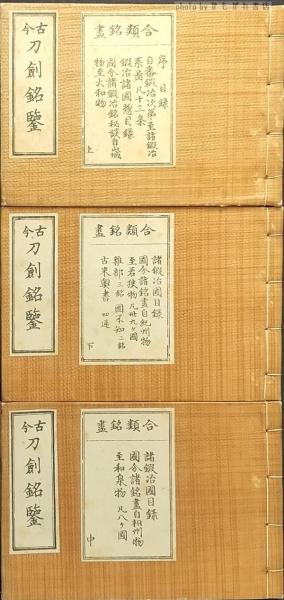 古今
刀劍銘鑒
合類銘盡
序
目錄
自番鍛冶次第至諸鍛冶
系圖凡十三条
鍛冶諸國惣目録
國分諸鍛冶銘秘談自山城
物至大和物
上
古今
刀劍銘鑒
合類銘盡
諸鍛冶國目録
國分諸銘盡自紀州物
至若狹物凡卅九ヶ國
雜部三銘 國不知二銘
古来
書 四通
下
古今
刀劍銘鑒
合類銘盡
諸鍛冶國目録
國分諸銘盡自相州物
至和泉物 凡八ヶ國
中
photo by